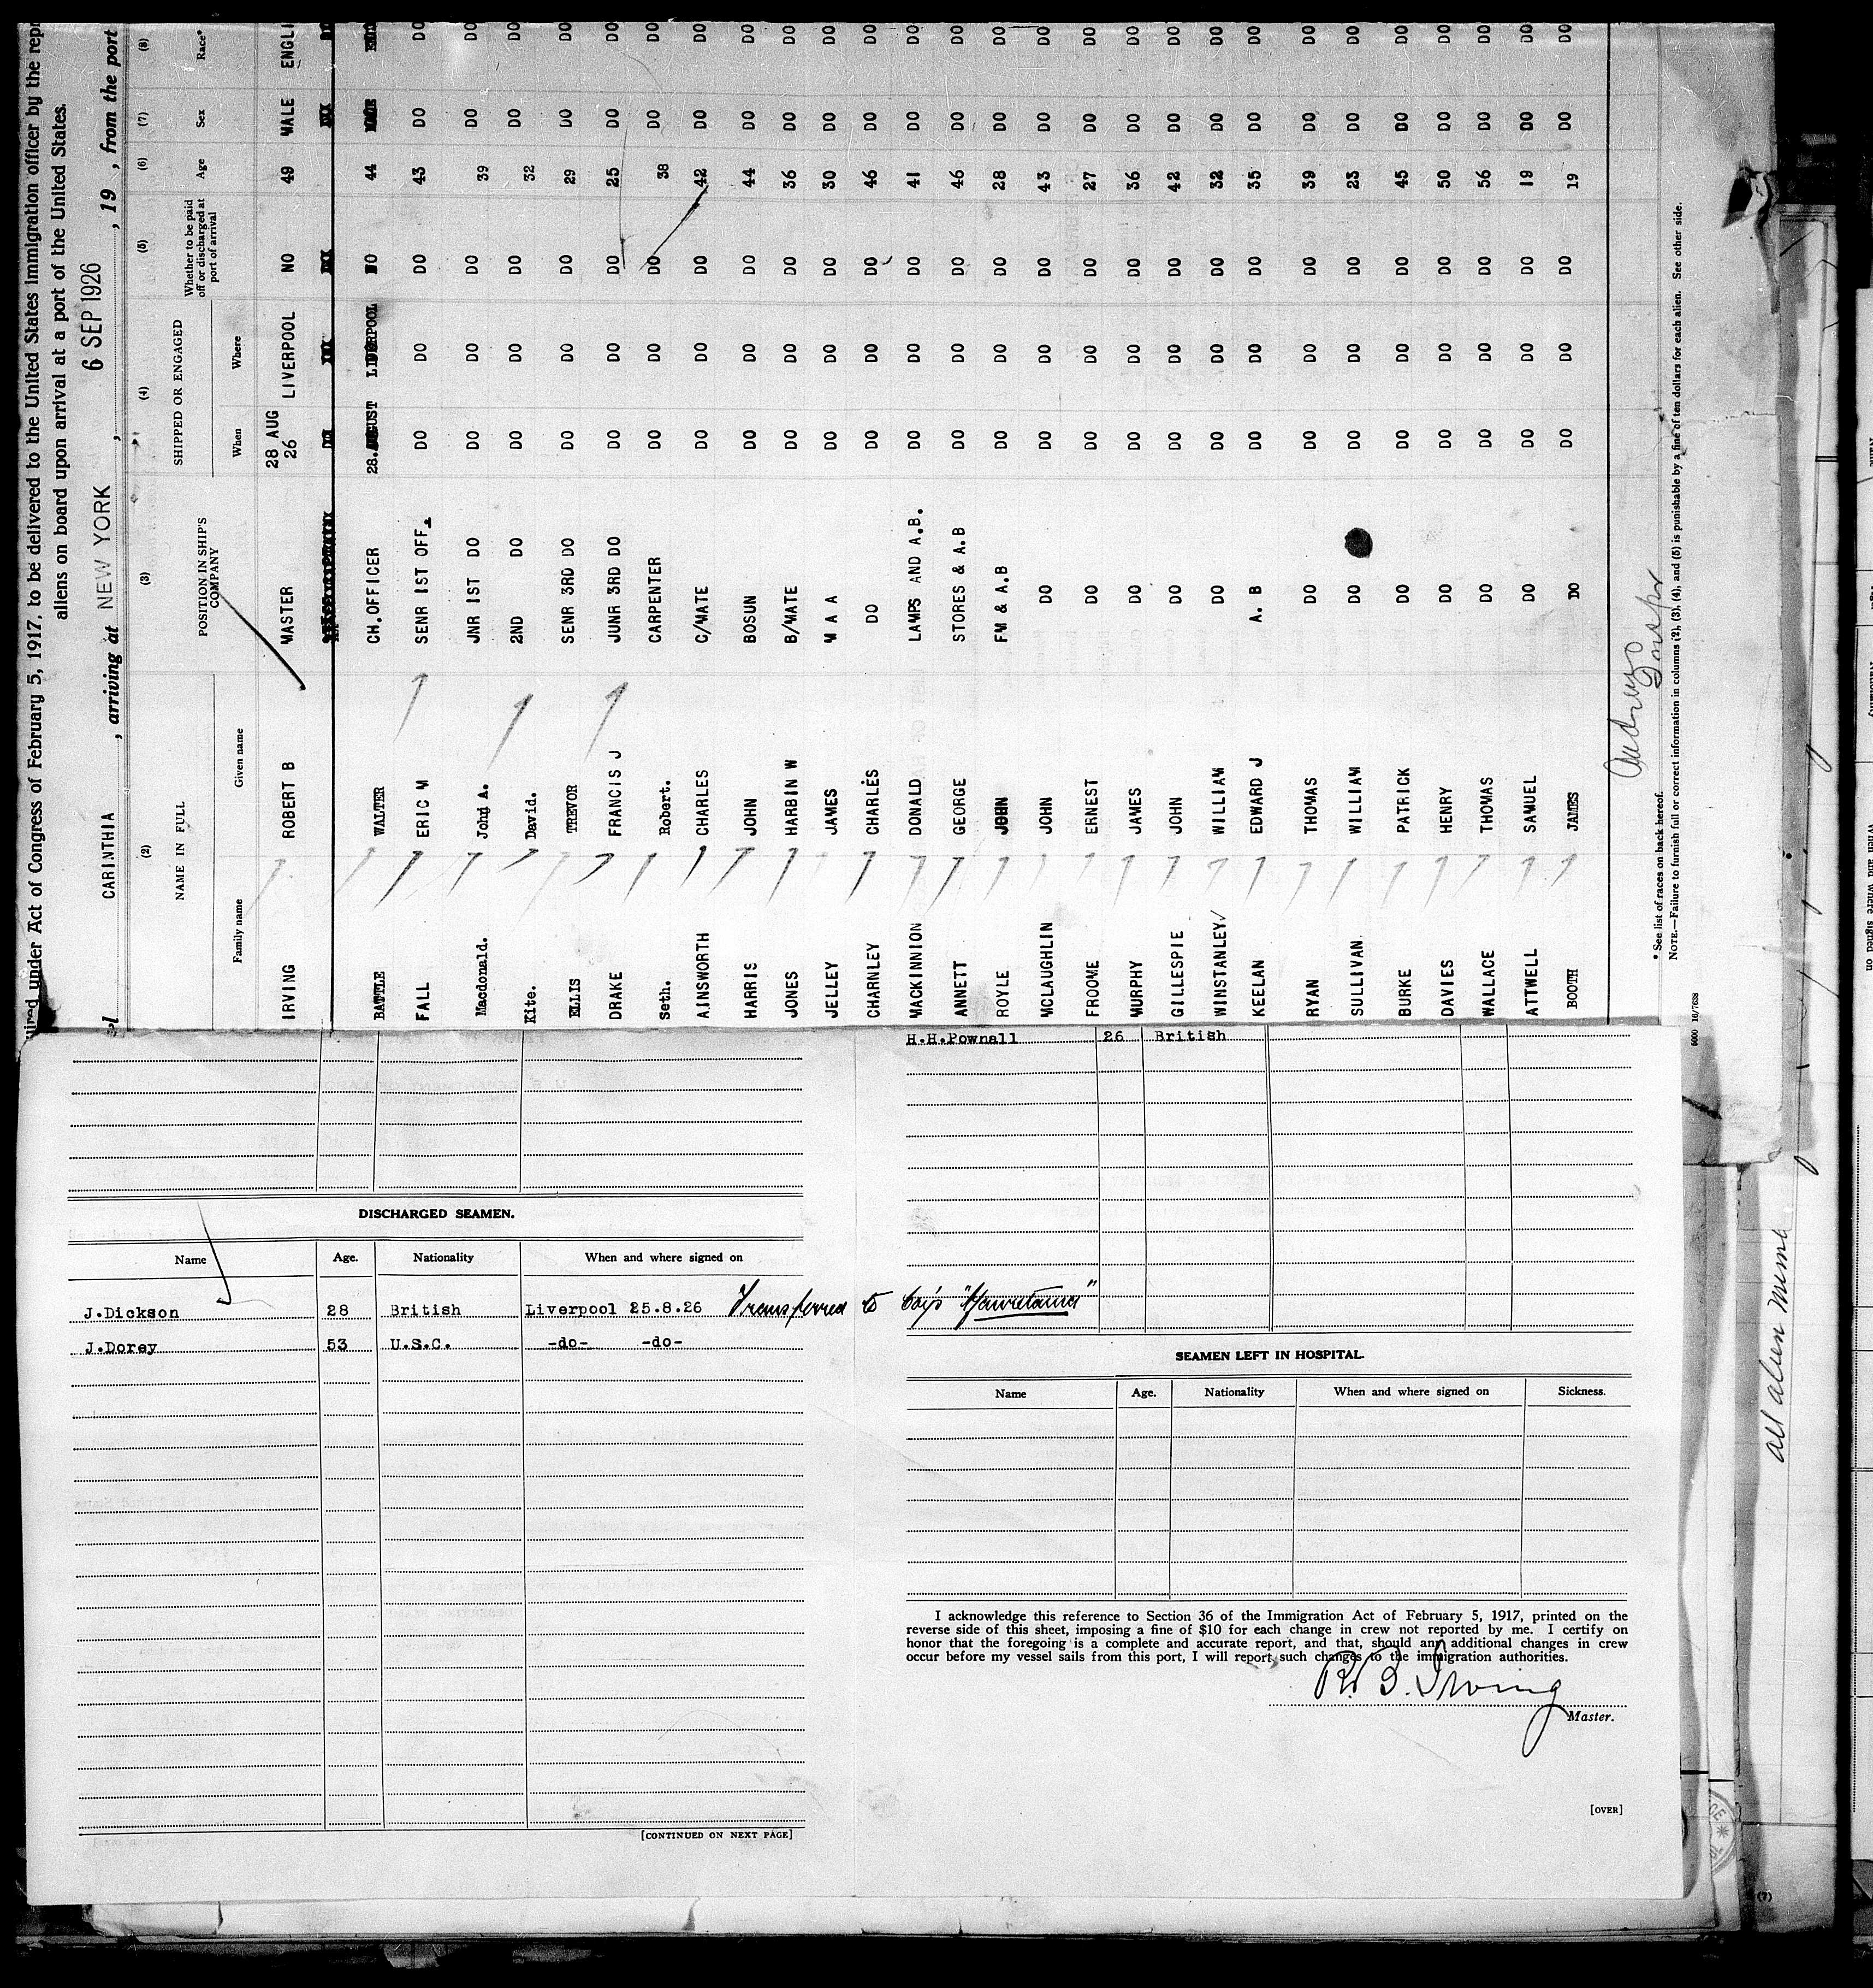 uired under Act of Congress of February 5, 1917, to be delivered to the United States immigration officer by the rep
aliens on board upon arrival at a port of the United States.
el CARINTHIA , arriving at NEW YORK , 6 SEP 1926 , 19 , from the port
(2) (3) (4) (5) (6) (7) (8)
NAME IN FULL POSITION IN SHIP'S COMPANY SHIPPED OR ENGAGED Whether to be paid off or discharged at port of arrival Age Sex Race*
Family name Given name When Where
IRVING ROBERT B MASTER 28 AUG 26 LIVERPOOL NO 49 MALE ENGLI
BATTLE WALTER CH.OFFICER 28.AUGUST LIVERPOOL NO 44
FALL ERIC M SENR 1ST OFF. DO DO DO 43 DO DO
Macdonald. John A. JNR 1ST DO DO DO DO 39 DO DO
Kite. David. 2ND DO DO DO DO 32 DO DO
ELLIS TREVOR SENR 3RD DO DO DO DO 29 DO DO
DRAKE FRANCIS J JUNR 3RD DO DO DO DO 25 DO DO
Seth. Robert. CARPENTER DO DO DO 38 DO DO
AINSWORTH CHARLES C/MATE DO DO DO 42 DO DO
HARRIS JOHN BOSUN DO DO DO 44 DO DO
JONES HARBIN W B/MATE DO DO DO 36 DO DO
JELLEY JAMES M A A DO DO DO 30 DO DO
CHARNLEY CHARLES DO DO DO DO 46 DO DO
MACKINNION DONALD LAMPS AND A.B. DO DO DO 41 DO DO
ANNETT GEORGE STORES & A.B DO DO DO 46 DO DO
ROYLE JOHN FM & A.B DO DO DO 28 DO DO
MCLAUGHLIN JOHN DO DO DO DO 43 DO DO
FROOME ERNEST DO DO DO DO 27 DO DO
MURPHY JAMES DO DO DO DO 36 DO DO
GILLESPIE JOHN DO DO DO DO 42 DO DO
WINSTANLEY WILLIAM DO DO DO DO 32 DO DO
KEELAN EDWARD J A. B DO DO DO 35 DO DO
RYAN THOMAS DO DO DO DO 39 DO DO
SULLIVAN WILLIAM DO DO DO DO 23 DO DO
BURKE PATRICK DO DO DO DO 45 DO DO
DAVIES HENRY DO DO DO DO 50 DO DO
WALLACE THOMAS DO DO DO DO 56 DO DO
ATTWELL SAMUEL DO DO DO DO 19 DO DO
BOOTH JAMES DO DO DO DO 19 DO DO
* See list of races on back hereof.
NOTE.—Failure to furnish full or correct information in columns (2), (3), (4), and (5) is punishable by a fine of ten dollars for each alien. See other side.
5000 16/7638
H.H.Pownall 26 British
DISCHARGED SEAMEN.
Name Age. Nationality When and where signed on
J.Dickson 28 British Liverpool 25.8.26 Transferred to Coy's "Mauretania"
J.Dorey 53 U.S.C. -do- -do-
[CONTINUED ON NEXT PAGE]
SEAMEN LEFT IN HOSPITAL.
Name Age. Nationality When and where signed on Sickness.
I acknowledge this reference to Section 36 of the Immigration Act of February 5, 1917, printed on the
reverse side of this sheet, imposing a fine of $10 for each change in crew not reported by me. I certify on
honor that the foregoing is a complete and accurate report, and that, should any additional changes in crew
occur before my vessel sails from this port, I will report such changes to the immigration authorities.
R. B. Irving
Master.
[OVER]
all alien
(7)